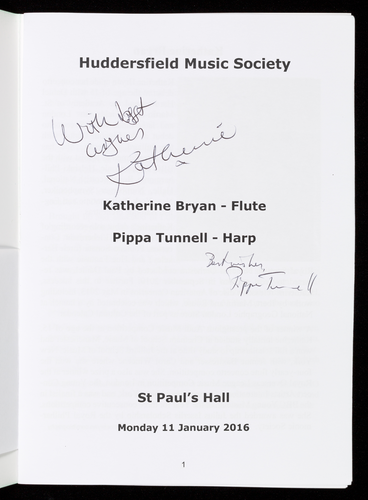 Huddersfield Music Society
With best
wishes
Katherine
x
Katherine Bryan - Flute
Pippa Tunnell - Harp
Best wishes,
Pippa Tunnell
St Paul's Hall
Monday 11 January 2016
1